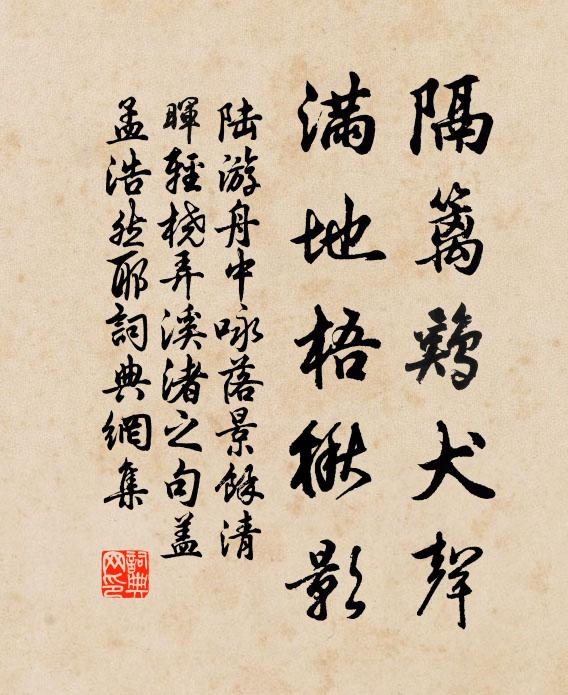 隔篱鸡犬声
满地梧楸影
陆游舟中咏落景馀清
晖轻桡弄溪渚之句盖
孟浩然耶詞典網集
詞典網印